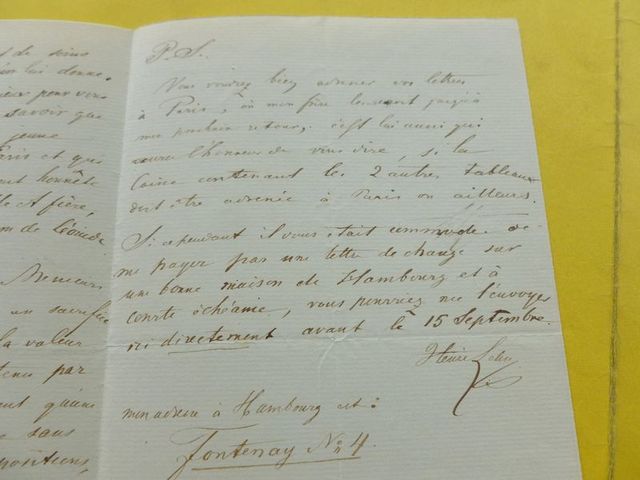 et de soins
lui donne,
pour vous
savoir que
jeune
Paris et que
honnête
et fière,
de Léonide
Messieurs
un sacrifice
la valeur
tenu par
sans
P. S.
Vous voudrez bien adresser vos lettres
à Paris, où mon frère jusqu'à
mon prochain retour, c'est lui aussi qui
aura l'honneur de vous dire, si la
Caisse contenant les 2 autres tableaux
doit être adressée à Paris ou ailleurs.
Si cependant il vous était commode de
me payer par une lettre de change sur
une bonne maison de Hambourg et à
courte échéance, vous pourriez me l'envoyer
ici directement avant le 15 Septembre.
Henri Lehm
mon adresse à Hambourg est:
Fontenay No 4.